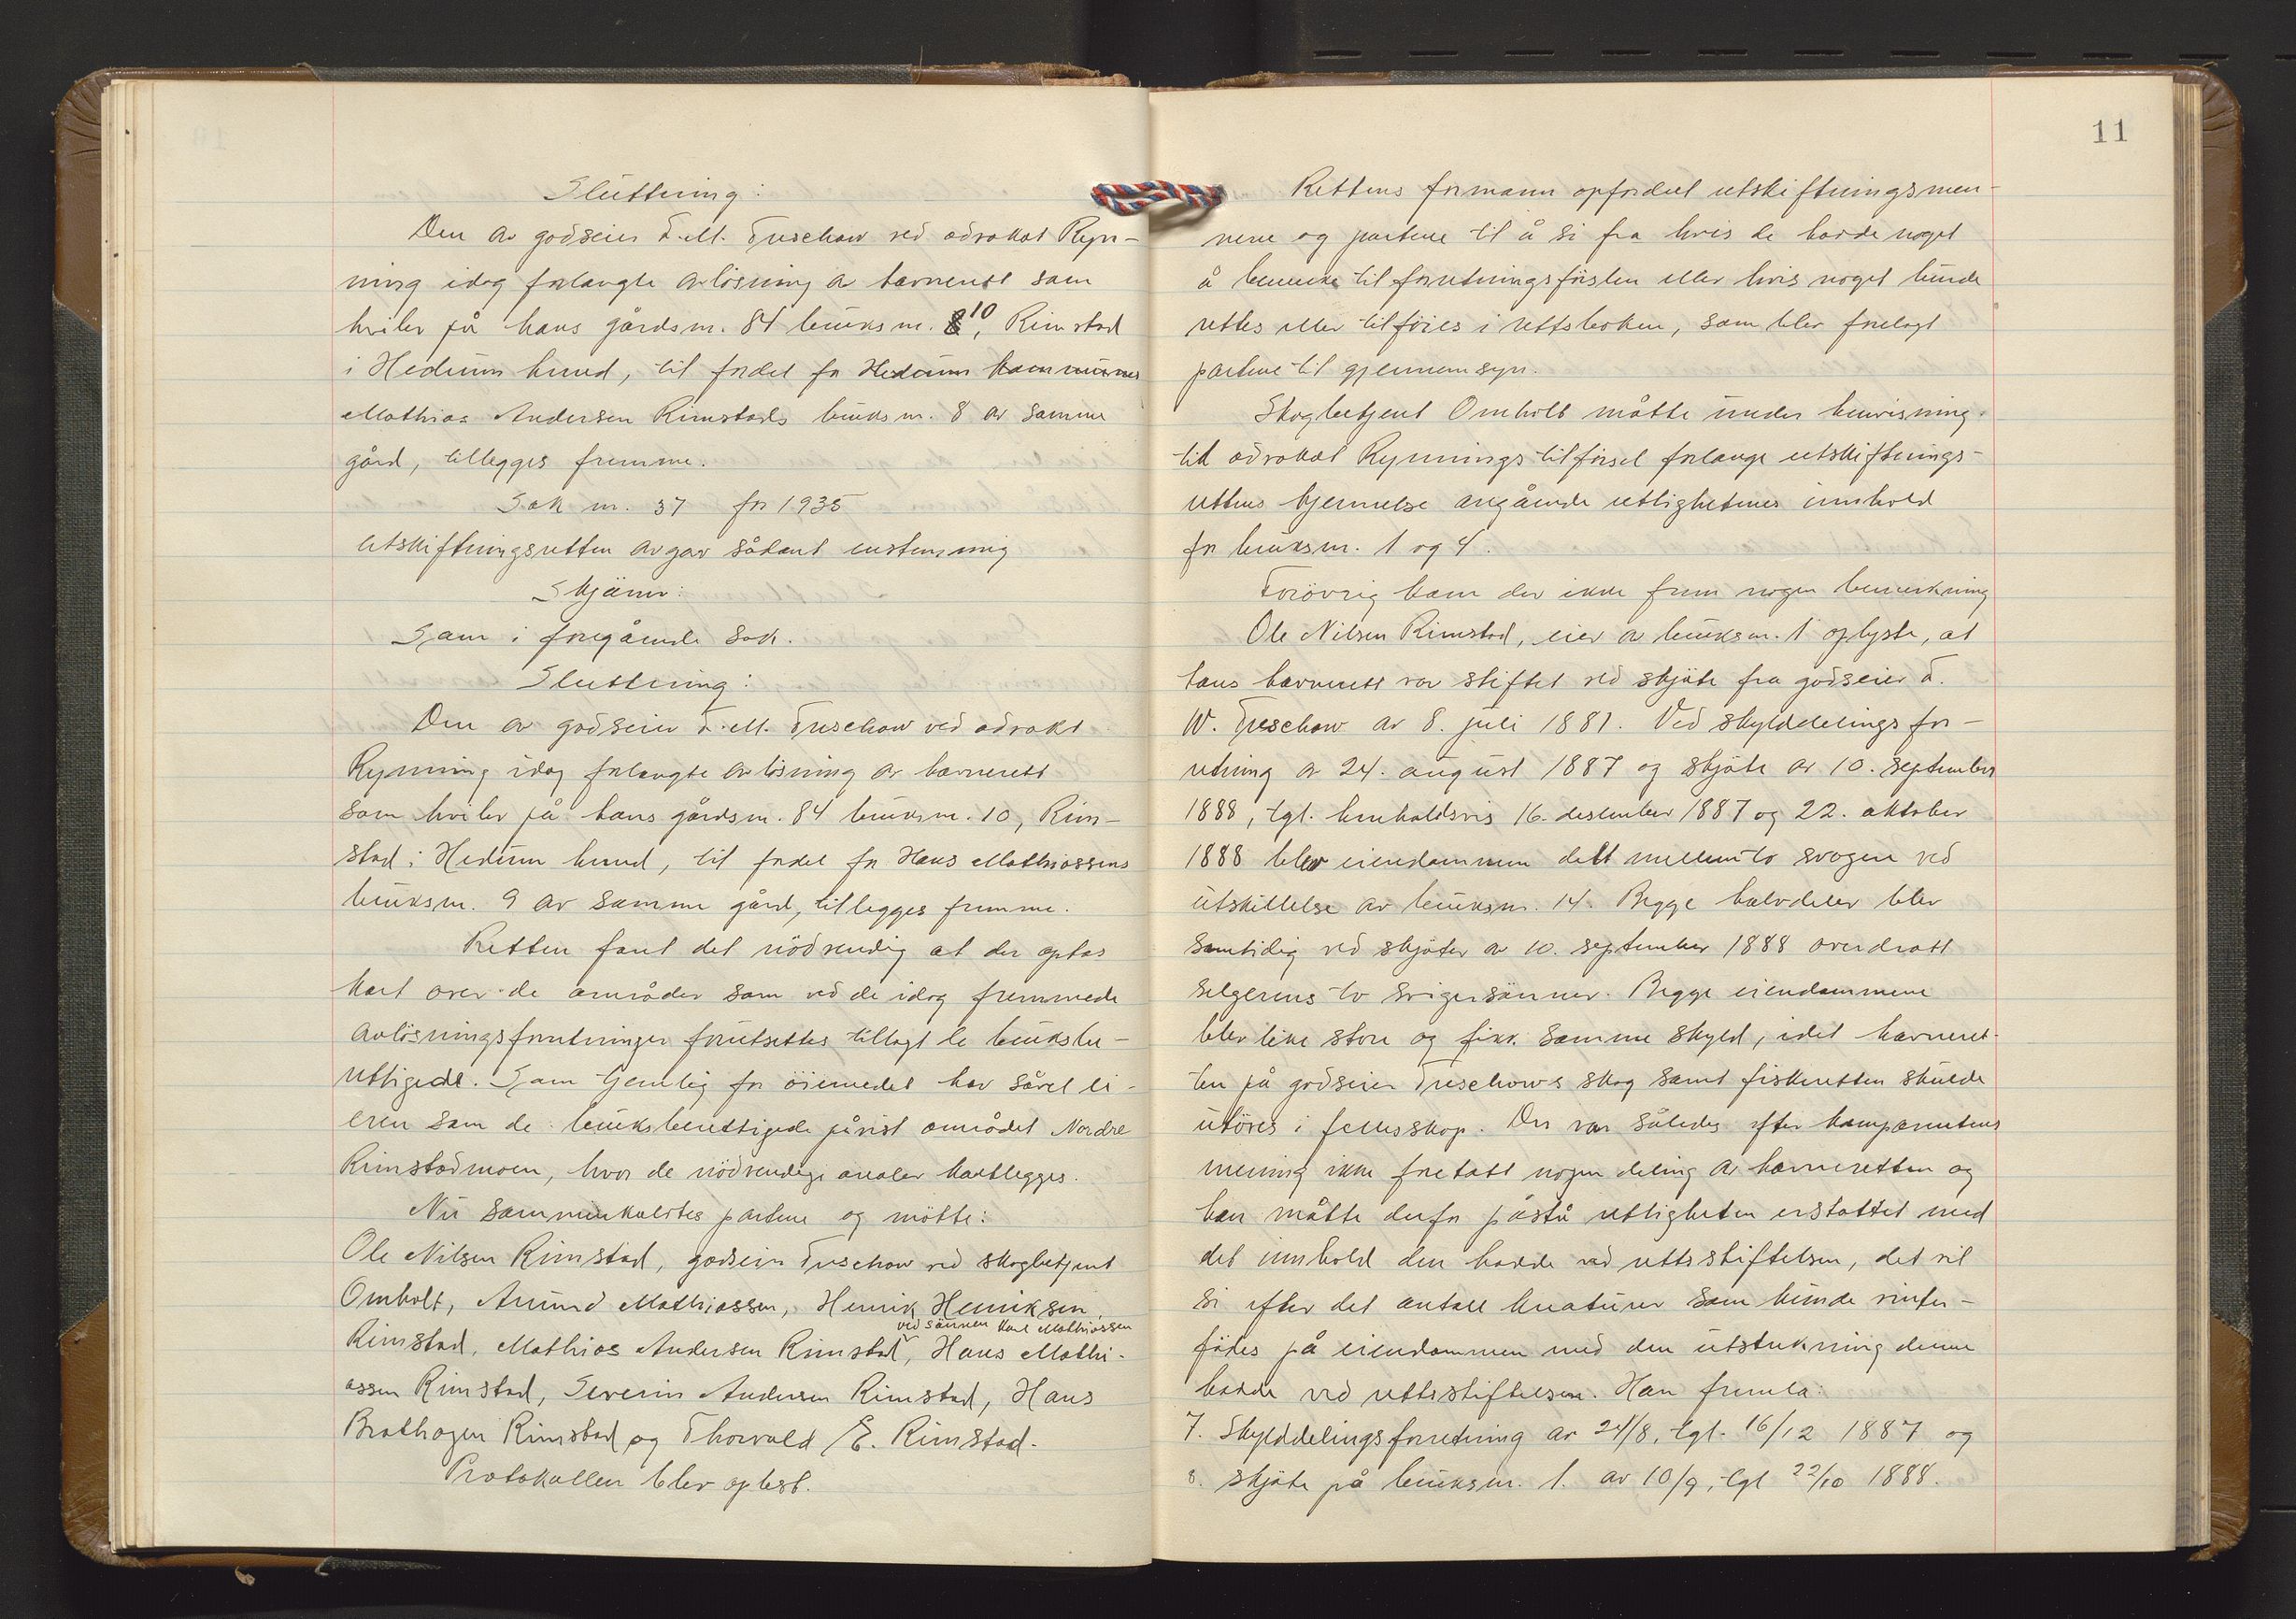 Sluttning:
Den av godseier F. M. Treschow ved advokat Ryn-
ning idag forlangte avlösning av havnerett som
hviler på hans gårdsnr. 84 bruksnr. 10, Rimstad
i Hedrum herred, til fordel for Hedrum kommunes
Mathias Andersen Rimstads bruksnr. 8 av samme
gård, tillegges fremme.
Sak nr. 37 for 1935
Utskiftningsretten avgav sådant enstemmig
Skjönn:
Som i foregående sak.
Sluttning:
Den av godseier F. M. Treschow ved advokt
Rynning idag forlangte avlösning av havnerett
som hviler på hans gårdsnr. 84 bruksnr. 10, Rim-
stad i Hedrum herred, til fordel for Hans Mathiassens
bruksnr. 9 av samme gård, tillegges fremme.
Retten fant det nödvendig at der optas
kart over de områder som ved de idag fremmede
avlösningsforretninger forutsettes tillagt de bruksbe-
rettigede. Som tjenlig for öiemedet har såvel ei-
eren som de bruksberettigede påvist området Nordre
Rimstadmoen, hvor de nödvendige arealer kartlegges.
Nu sammenkaldtes partene og mötte:
Ole Nilsen Rimstad, godseier Treschow ved skogbetjent
Omholt, Amund Mathiassen, Henrik Henriksen
ved sönnen Karl Mathiassen
Rimstad, Mathias Andersen Rimstad, Hans Mathi-
assen Rimstad, Severin Andersen Rimstad, Hans
Brathagen Rimstad og Thorvald E. Rimstad.
Protokollen blev oplest.
11
Rettens formann opfordret utskiftningsmen-
nene og partene til å si fra hvis de hadde noget
å bemerke til forretningsförslen eller hvis noget burde
rettes eller tilföies i rettsboken, som blev forelagt
partene til gjennemsyn.
Skogbetjent Omholt måtte under henvisning
til advokat Rynnings tilförsel forlange utskiftnings-
rettens kjennelse angående rettighetenes innhold
for bruksnr. 1 og 4.
Forövrig kom der ikke frem nogen bemerkning
Ole Nilsen Rimstad, eier av bruksnr. 1 oplyste, at
hans havnerett var stiftet ved skjöte fra godseier F.
W. Treschow av 8. juli 1881. Ved skylddelingsfor-
retning av 24. august 1887 og skjöte av 10. september
1888, tgl. henholdsvis 16. desember 1887 og 22. oktober
1888 blev eiendommen delt mellem to svogere ved
utskillelse av bruksnr. 14. Begge halvdeler blev
samtidig ved skjöter av 10. september 1888 overdratt
selgerens to svigersönner. Begge eiendommene
blev like store og fikk samme skyld, idet havneret-
ten på godseier Treschows skog samt fiskeretten skulde
utöves i fellesskap. Der var således efter komparentens
mening ikke foretatt nogen deling av havneretten og
han måtte derfor påstå rettigheten erstattet med
det innhold den hadde ved rettsstiftelsen, det vil
si efter det antall kreaturer som kunde vinter-
födes på eiendommen med den utstrekning denne
hadde ved rettsstiftelsen. Han fremla:
7. Skylddelingsforretning av 24/8, tgl. 16/12 1887 og
8. skjöte på bruksnr. 1. av 10/9, tgl 22/10 1888.